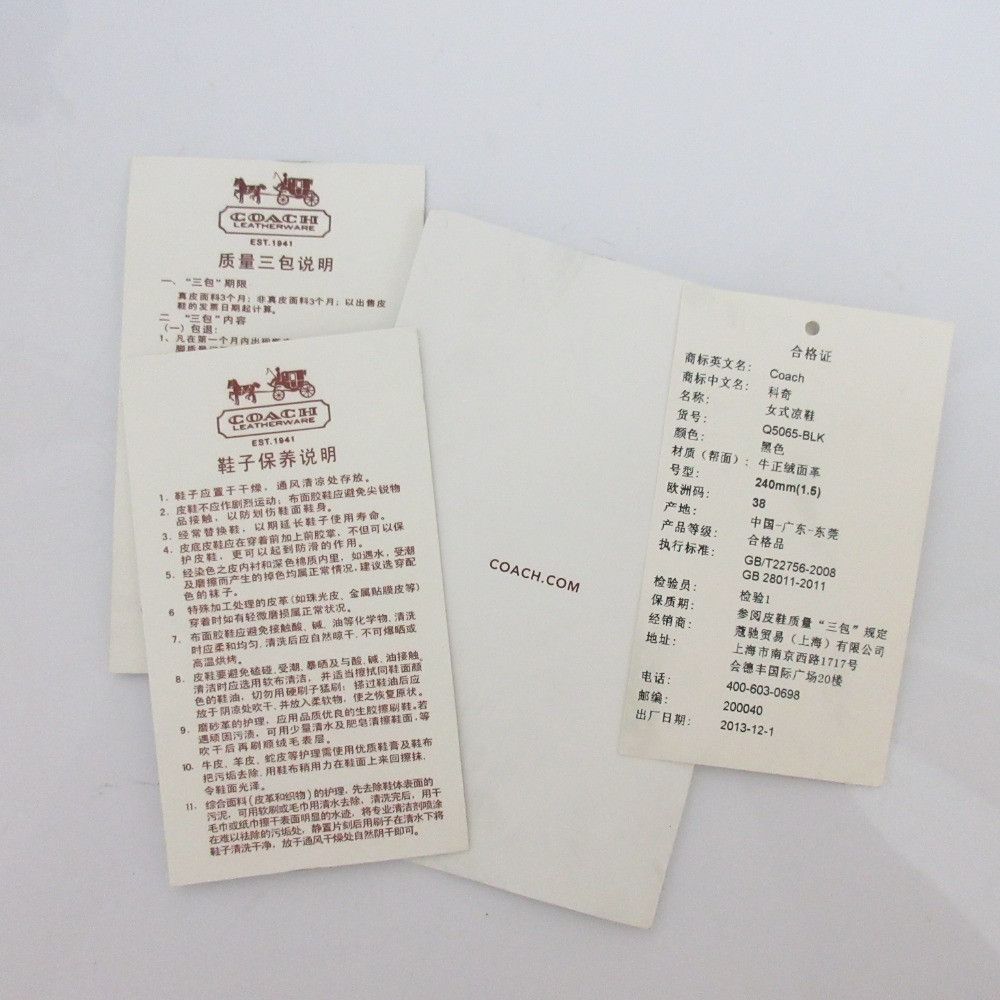 COACH
LEATHERWARE
EST.1941
质量三包说明
一、“三包”期限
真皮面料3个月；非真皮面料3个月；以出售皮
鞋的发票日期起计算。
二 “三包”内容
(一) 包退：
1、凡在第一个月内出现
COACH
LEATHERWARE
EST.1941
鞋子保养说明
1. 鞋子应置干干燥，通风清凉处存放。
2. 皮鞋不应作剧烈运动；布面胶鞋应避免尖锐物
品接触，以防划伤鞋面鞋身。
3. 经常替换鞋，以期延长鞋子使用寿命。
4. 皮底皮鞋应在穿着前加上前胶掌，不但可以保
护皮鞋，更可以起到防滑的作用。
5. 经染色之皮内衬和深色棉质内里，如遇水，受潮
及磨擦而产生的掉色均属正常情况，建议选穿配
色的袜子。
6 特殊加工处理的皮革(如珠光皮、金属贴膜皮等)
穿着时如有轻微磨损属正常状况。
7. 布面胶鞋应避免接触酸、碱、油等化学物，清洗
时应柔和均匀，清洗后应自然晾干，不可爆晒或
高温烘烤。
8. 皮鞋要避免磕碰、受潮、暴晒及与酸、碱、油接触，
清洁时应选用软布清洁，并适当擦拭同鞋面颜
色的鞋油，切勿用硬刷子猛刷；搽过鞋油后应
放于阴凉处吹干，并放入柔软物，使之恢复原状。
9. 磨砂革的护理，应用品质优良的生胶擦刷鞋。若
遇顽固污渍，可用少量清水及肥皂清擦鞋面，等
吹干后再刷顺绒毛表层。
10. 牛皮、羊皮、蛇皮等护理需使用优质鞋膏及鞋布
把污垢去除，用鞋布稍用力在鞋面上来回擦抹，
令鞋面光泽。
11. 综合面料(皮革和织物)的护理，先去除鞋体表面的
污泥，可用软刷或毛巾用清水去除，清洗完后，用干
毛巾或纸巾擦干表面明显的水迹，将专业清洁剂喷涂
在难以祛除的污垢处，静置片刻后用刷子在清水下将
鞋子清洗干净，放于通风干燥处自然阴干即可。
COACH.COM
合格证
商标英文名： Coach
商标中文名： 科奇
名称： 女式凉鞋
货号： Q5065-BLK
颜色： 黑色
材质（帮面）： 牛正绒面革
号型： 240mm(1.5)
欧洲码： 38
产地： 中国-广东-东莞
产品等级： 合格品
执行标准： GB/T22756-2008
GB 28011-2011
检验员： 检验1
保质期： 参阅皮鞋质量“三包”规定
经销商： 蔻驰贸易（上海）有限公司
地址： 上海市南京西路1717号
会德丰国际广场20楼
电话： 400-603-0698
邮编： 200040
出厂日期： 2013-12-1